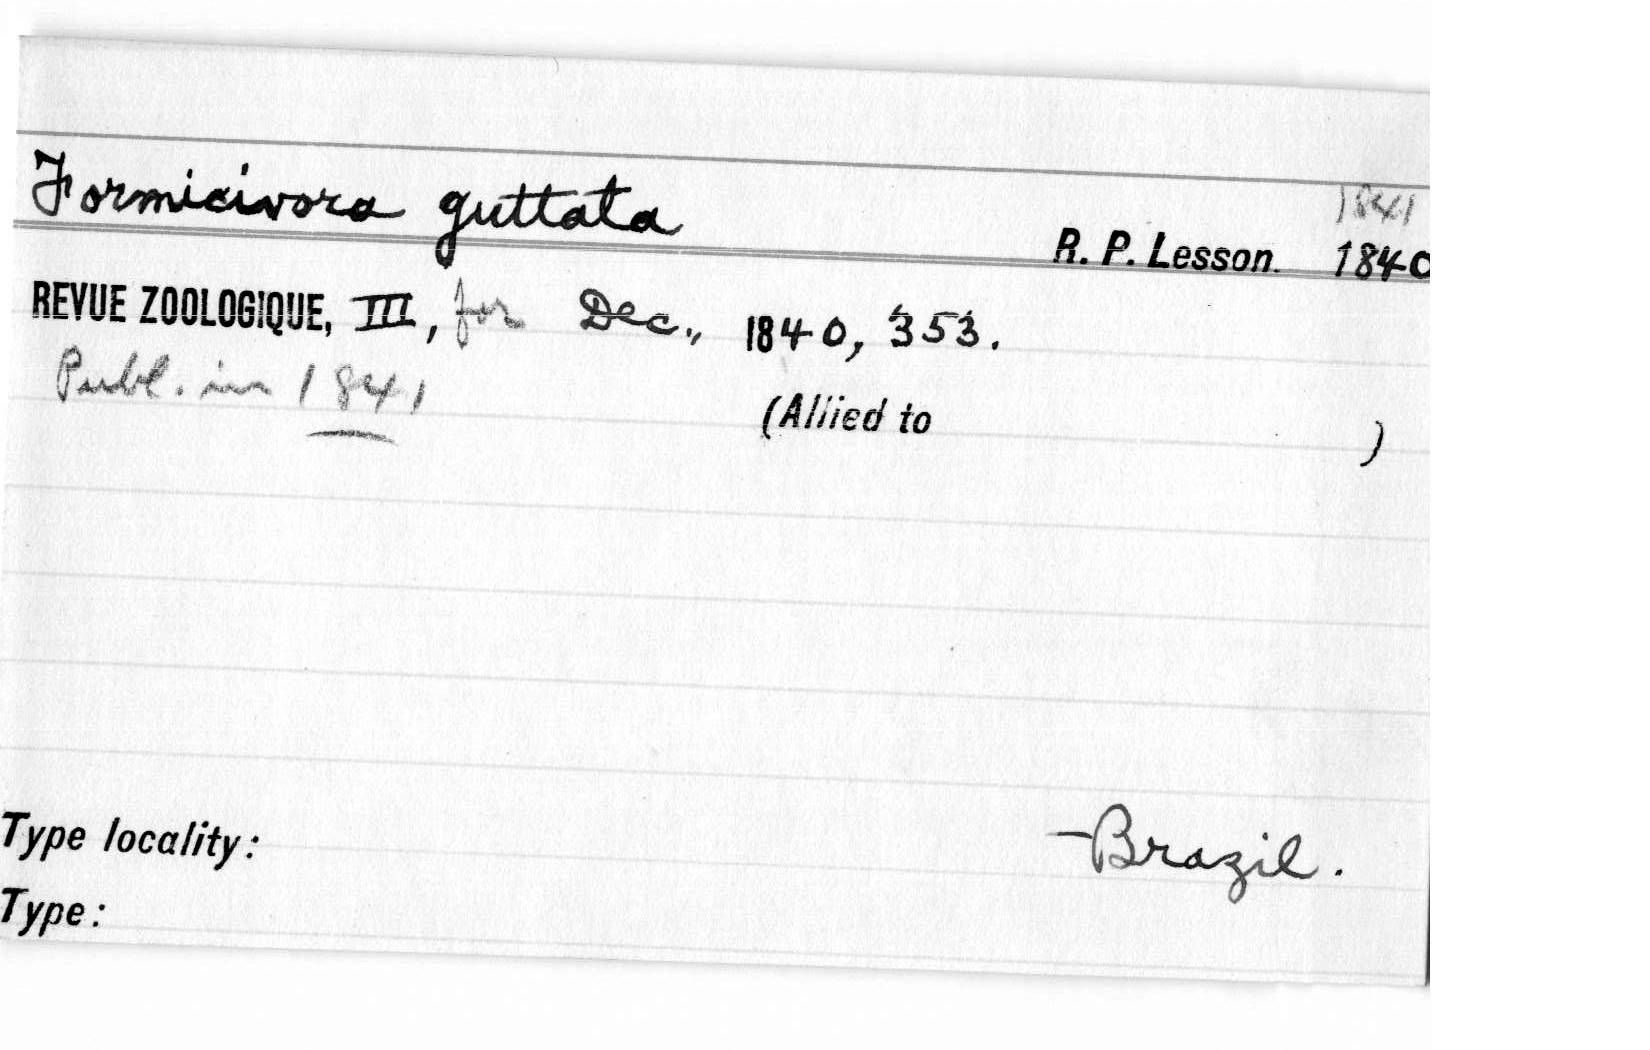 Formicivora guttata
1841
R. P. Lesson. 1840
REVUE ZOOLOGIQUE, III, for Dec., 1840, 353.
Publ. in 1841
(Allied to )
Type locality: —Brazil.
Type: